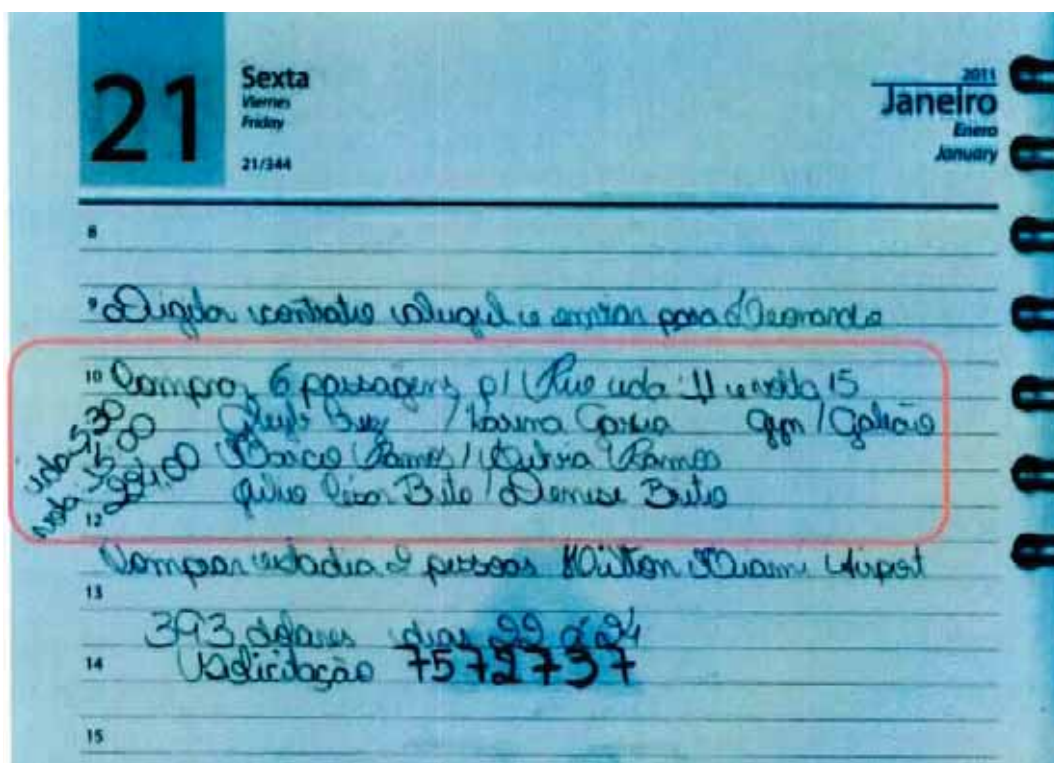 21
Sexta
Viernes
Friday
21/344
2011
Janeiro
Enero
January
8
9 Digitar contrato aluguel e enviar para Leonardo
10 Comprar 6 passagens p/ Rio ida 11 e volta 15
/ Karina Garcia Gyn / Galeão
Marco Ramos / Ramos
ida 5,30
volta 15,00
284,00
Julio César Brito / Denise Brito
12
Comprar estadia 2 pessoas Hilton Miami Airport
13
393 dolares dias 22 a 24
14 Solicitação 7572737
15